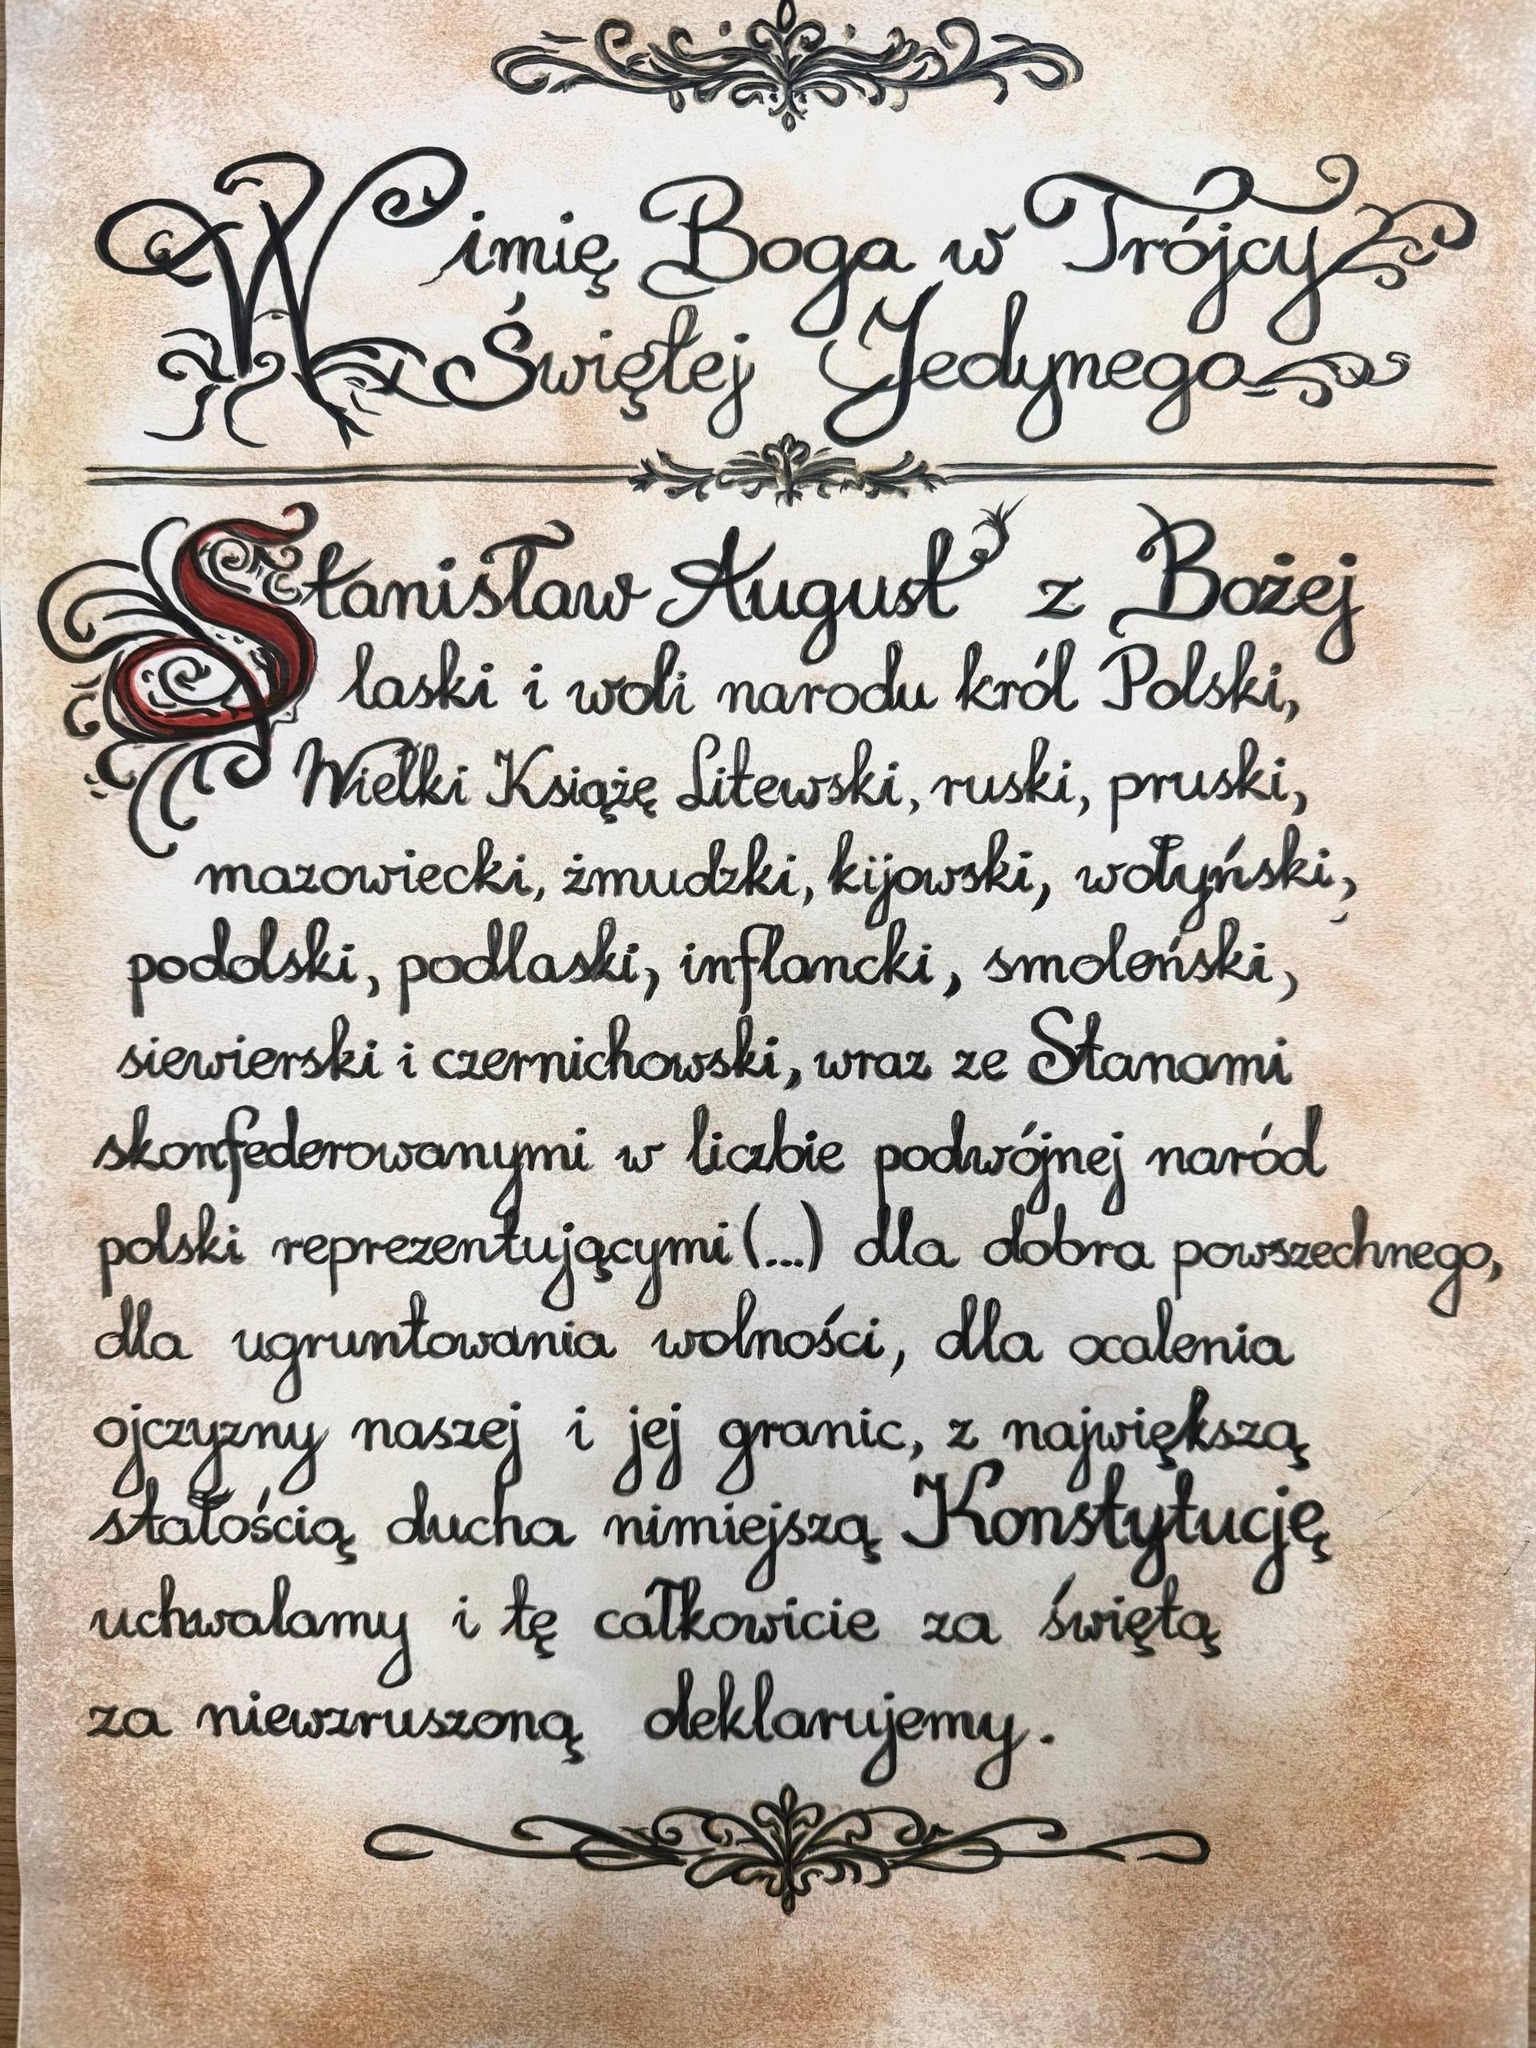 W imię Boga w Trójcy
Świętej Jedynego
Stanisław August z Bożej
łaski i woli narodu król Polski,
Wielki Książę Litewski, ruski, pruski,
mazowiecki, żmudzki, kijowski, wołyński,
podolski, podlaski, inflancki, smoleński,
siewierski i czernichowski, wraz ze Stanami
skonfederowanymi w liczbie podwójnej naród
polski reprezentującymi (...) dla dobra powszechnego,
dla ugruntowania wolności, dla ocalenia
ojczyzny naszej i jej granic, z największą
stałością ducha nimiejszą Konstytucję
uchwalamy i tę całkowicie za świętą
za niewzruszoną deklarujemy.